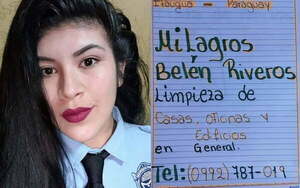 Itaugua - Paraguay
Milagros
Belén Riveros
Limpieza de
Casas, oficinas y
Edificios
en General.
Tel: (0992) 787-019